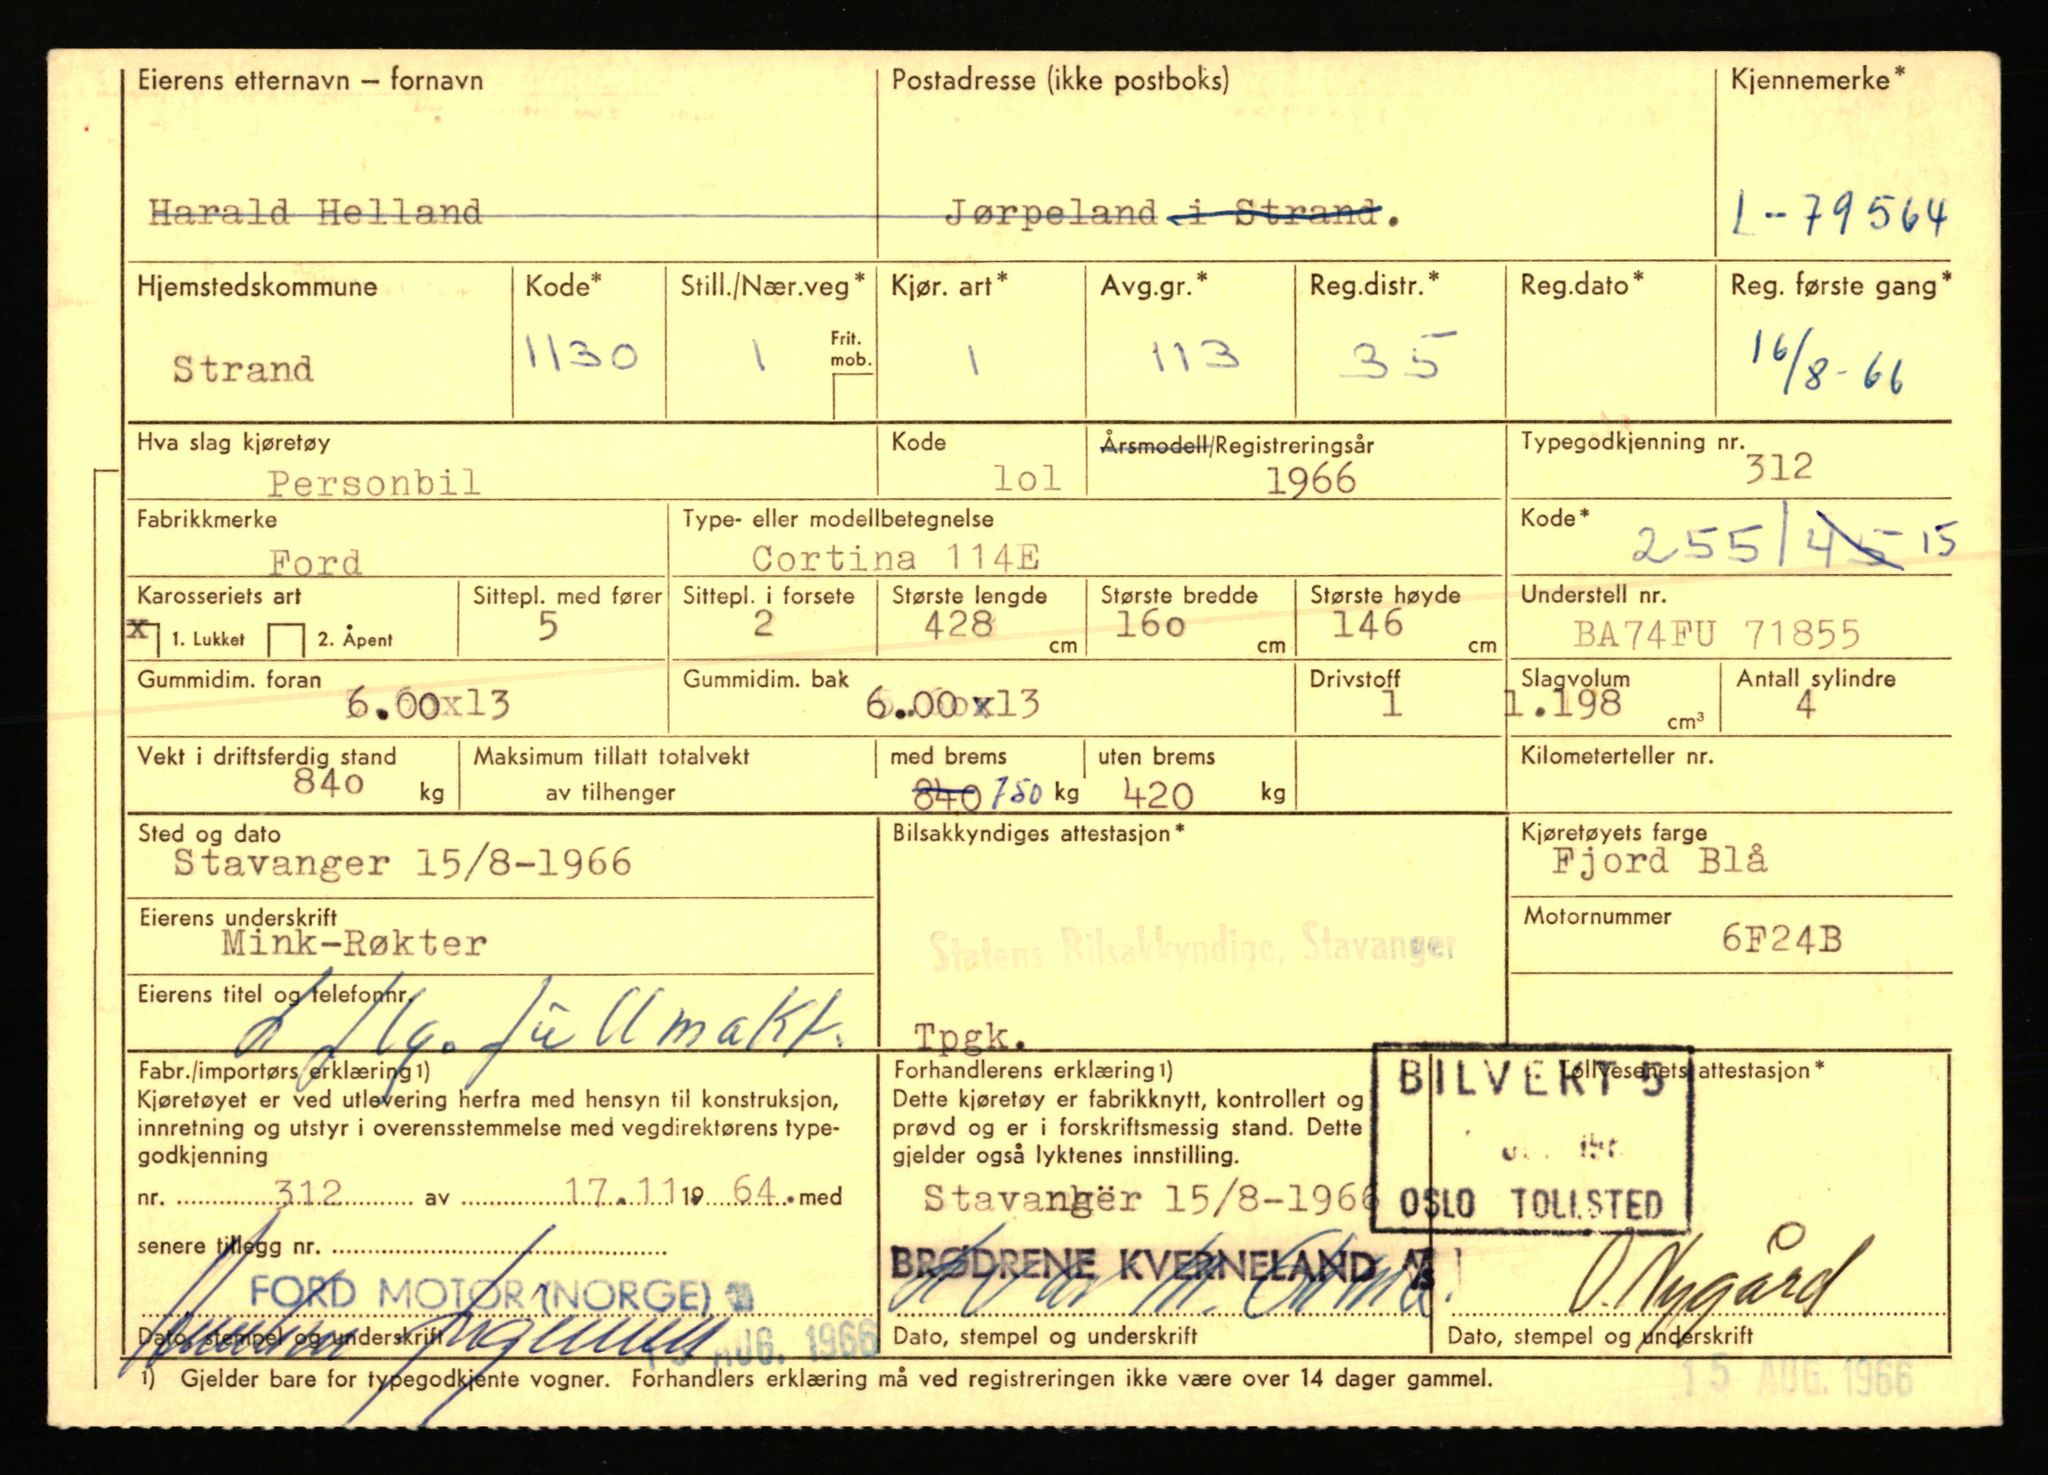 Eierens etternavn – fornavn
Postadresse (ikke postboks)
Kjennemerke*
Harald Helland
Jørpeland i Strand.
L-79564
Hjemstedskommune
Kode*
Still./Nær.veg*
Kjør. art*
Avg.gr.*
Reg.distr.*
Reg.dato*
Reg. første gang*
Strand
1130
1
Frit. mob.
1
113
35
16/8-66
Hva slag kjøretøy
Kode
Årsmodell/Registreringsår
Typegodkjenning nr.
Personbil
lol
1966
312
Fabrikkmerke
Type- eller modellbetegnelse
Kode*
Ford
Cortina 114E
255/45 15
Karosseriets art
Sittepl. med fører
Sittepl. i forsete
Største lengde
Største bredde
Største høyde
Understell nr.
x 1. Lukket 2. Åpent
5
2
428 cm
16o cm
146 cm
BA74FU 71855
Gummidim. foran
Gummidim. bak
Drivstoff
Slagvolum
Antall sylindre
6.00x13
6.00x13
1
1.198 cm³
4
Vekt i driftsferdig stand
Maksimum tillatt totalvekt
med brems
uten brems
Kilometerteller nr.
84o kg
av tilhenger
840 750 kg
420 kg
Sted og dato
Bilsakkyndiges attestasjon*
Kjøretøyets farge
Stavanger 15/8-1966
Fjord Blå
Eierens underskrift
Motornummer
Mink-Røkter
Statens Bilsakkyndige, Stavanger
6F24B
Eierens titel og telefonnr.
flg. fullmakt.
Tpgk.
Fabr./importørs erklæring1)
Forhandlerens erklæring1)
Tollvesenets attestasjon*
Kjøretøyet er ved utlevering herfra med hensyn til konstruksjon,
innretning og utstyr i overensstemmelse med vegdirektørens type-
godkjenning
Dette kjøretøy er fabrikknytt, kontrollert og
prøvd og er i forskriftsmessig stand. Dette
gjelder også lyktenes innstilling.
BILVERKT 5
OSLO TOLLSTED
nr. 312 av 17.11 19 64. med
Stavanger 15/8-1966
senere tillegg nr.
FORD MOTOR (NORGE)
BRØDRENE KVERNELAND A/S
O. Nygård
Dato, stempel og underskrift
15 AUG. 1966
Dato, stempel og underskrift
Dato, stempel og underskrift
1) Gjelder bare for typegodkjente vogner. Forhandlers erklæring må ved registreringen ikke være over 14 dager gammel.
15 AUG. 1966